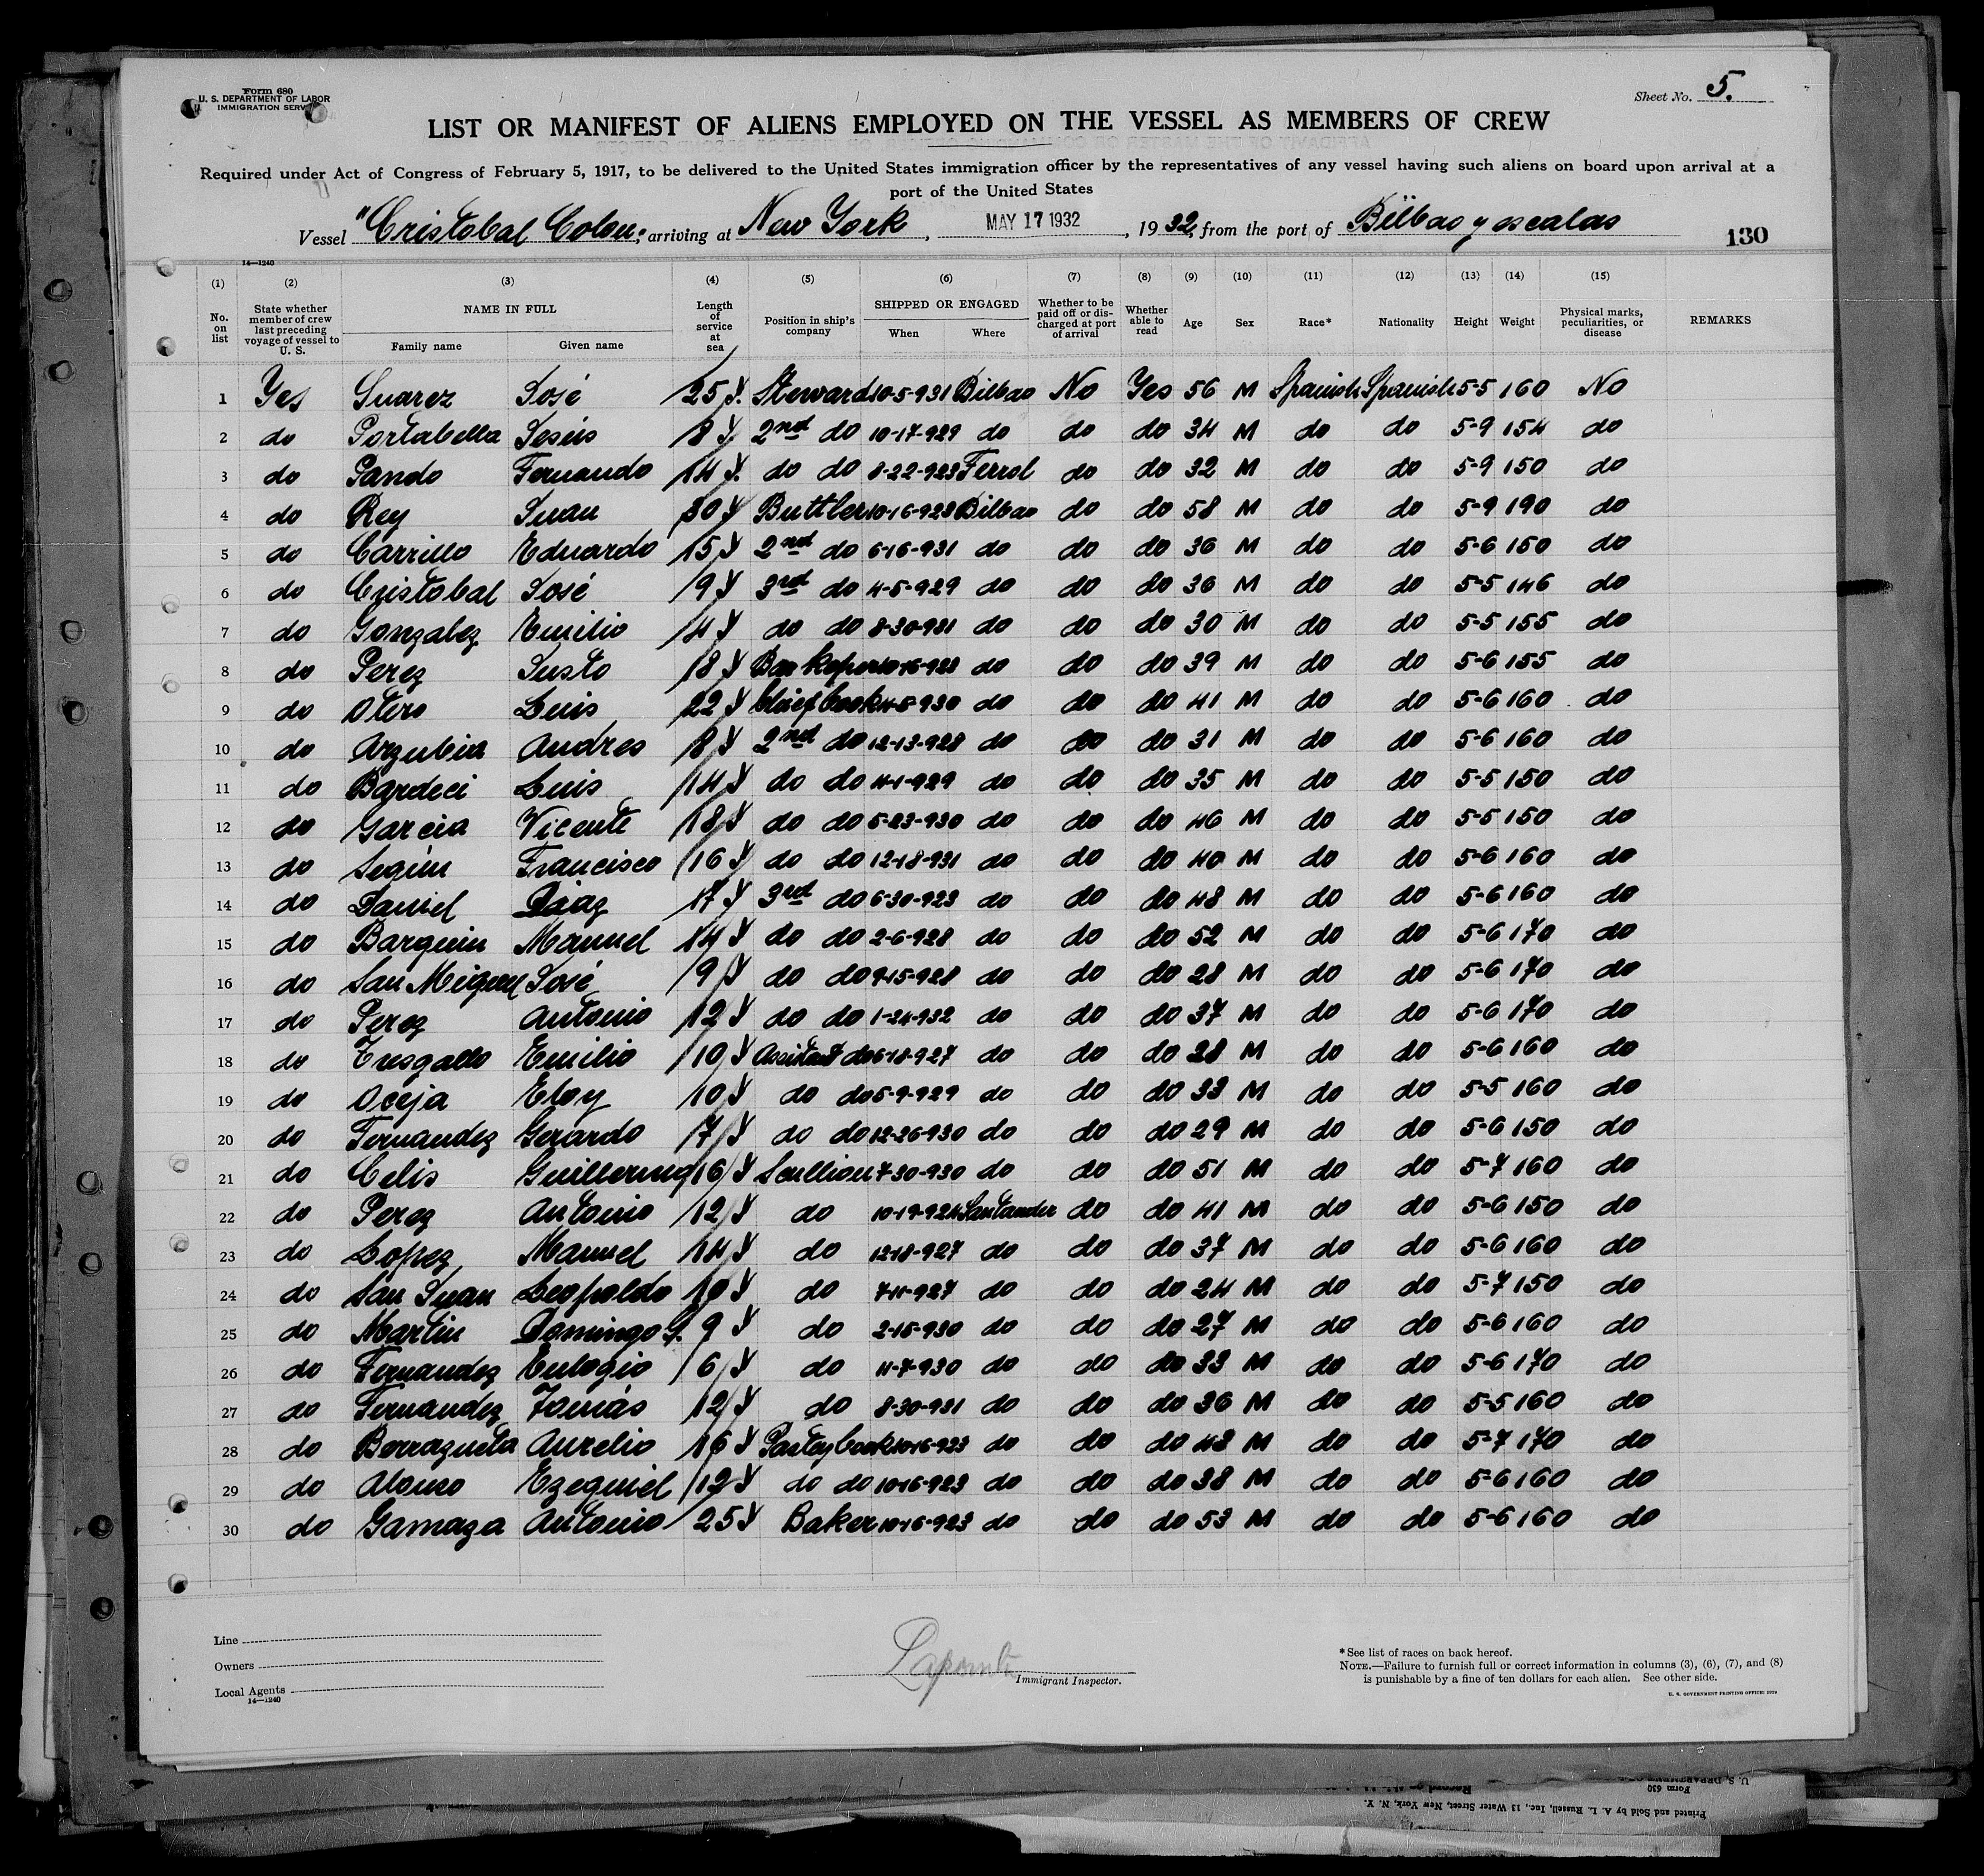 Form 680
U. S. DEPARTMENT OF LABOR
IMMIGRATION SERV
Sheet No. 5.
LIST OR MANIFEST OF ALIENS EMPLOYED ON THE VESSEL AS MEMBERS OF CREW
Required under Act of Congress of February 5, 1917, to be delivered to the United States immigration officer by the representatives of any vessel having such aliens on board upon arrival at a
port of the United States
Vessel "Cristobal Colon", arriving at New York, MAY 17 1932, 1932, from the port of Bilbao y escalas
130
14—1240
(1) (2) (3) (4) (5) (6) (7) (8) (9) (10) (11) (12) (13) (14) (15)
No. on list State whether member of crew last preceding voyage of vessel to U. S. NAME IN FULL Family name Given name Length of service at sea Position in ship's company SHIPPED OR ENGAGED When Where Whether to be paid off or discharged at port of arrival Whether able to read Age Sex Race* Nationality Height Weight Physical marks, peculiarities, or disease REMARKS
1 Yes Suarez José 25 y. Steward 10-5-931 Bilbao No Yes 56 M Spanish Spanish 5-5 160 No
2 do Portabella Jesús 8 y 2nd do 10-17-929 do do do 34 M do do 5-9 154 do
3 do Pando Fernando 14 y. do do 8-22-923 Ferrol do do 32 M do do 5-9 150 do
4 do Rey Juan 30 y Buttler 10-16-928 Bilbao do do 58 M do do 5-9 190 do
5 do Carrillo Eduardo 15 y 2nd do 6-16-931 do do do 36 M do do 5-6 150 do
6 do Cristobal José 9 y 3rd do 4-5-929 do do do 36 M do do 5-5 146 do
7 do Gonzalez Emilio 4 y do do 8-30-931 do do do 30 M do do 5-5 155 do
8 do Perez Justo 18 y Barkeper 10-16-928 do do do 39 M do do 5-6 155 do
9 do Otero Luis 22 y Chief Cook 4-5-930 do do do 41 M do do 5-6 160 do
10 do Arzubia Andres 8 y 2nd do 12-13-928 do do do 31 M do do 5-6 160 do
11 do Bardeci Luis 14 y do do 4-1-929 do do do 35 M do do 5-5 150 do
12 do Garcia Vicente 18 y do do 5-23-930 do do do 46 M do do 5-5 150 do
13 do Seguin Francisco 16 y do do 12-18-931 do do do 40 M do do 5-6 160 do
14 do Daniel Diaz 17 y 3rd do 6-30-923 do do do 48 M do do 5-6 160 do
15 do Barquin Manuel 14 y do do 2-6-928 do do do 52 M do do 5-6 170 do
16 do San Miguel José 9 y do do 9-15-928 do do do 28 M do do 5-6 170 do
17 do Perez Antonio 12 y do do 1-24-932 do do do 37 M do do 5-6 170 do
18 do Tresgallo Emilio 10 y Assitant do 6-18-927 do do do 28 M do do 5-6 160 do
19 do Oceja Eloy 10 y do do 5-9-929 do do do 33 M do do 5-5 160 do
20 do Fernandez Gerardo 7 y do do 12-26-930 do do do 29 M do do 5-6 150 do
21 do Celis Guillermo 16 y Scullion 7-30-930 do do do 51 M do do 5-7 160 do
22 do Perez Antonio 12 y do 10-19-924 Santander do do 41 M do do 5-6 150 do
23 do Lopez Manuel 14 y do 12-18-927 do do do 37 M do do 5-6 160 do
24 do San Juan Leopoldo 10 y do 7-11-927 do do do 24 M do do 5-7 150 do
25 do Martin Domingo G. 9 y do 2-15-930 do do do 27 M do do 5-6 160 do
26 do Fernandez Eulogio 6 y do 4-7-930 do do do 33 M do do 5-6 170 do
27 do Fernandez Tomás 12 y do 8-30-931 do do do 36 M do do 5-5 160 do
28 do Berrazueta Aurelio 16 y Pastey Cook 10-16-923 do do do 48 M do do 5-7 170 do
29 do Alonso Ezequiel 12 y do do 10-16-923 do do do 38 M do do 5-6 160 do
30 do Gamaza Antonio 25 y Baker 10-16-923 do do do 53 M do do 5-6 160 do
Line
Owners
Local Agents
14—1240
Immigrant Inspector.
*See list of races on back hereof.
NOTE.—Failure to furnish full or correct information in columns (3), (6), (7), and (8)
is punishable by a fine of ten dollars for each alien. See other side.
U. S. GOVERNMENT PRINTING OFFICE:
U. S. DEPARTMENT
Form 630
Printed and Sold by A. L. Russell, Inc., 13 Water Street, New York, N. Y.